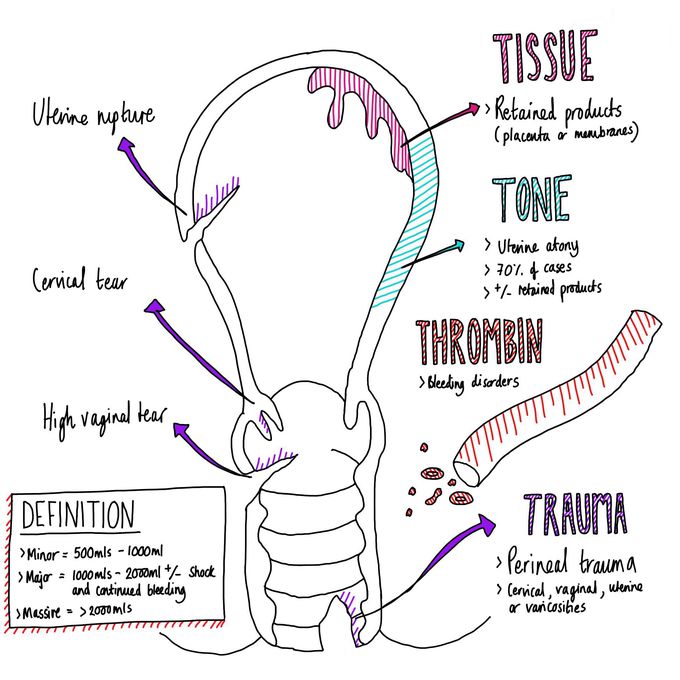 TISSUE
> Retained products
(placenta or membranes)
Uterine rupture
TONE
> Uterine atony
> 70% of cases
> +/- retained products
Cervical tear
THROMBIN
> Bleeding disorders
High vaginal tear
DEFINITION
> Minor = 500mls - 1000ml
> Major = 1000mls - 2000ml +/- shock
and continued bleeding
> Massive = >2000mls
TRAUMA
> Perineal trauma
> Cervical, vaginal, uterine
or varicosities